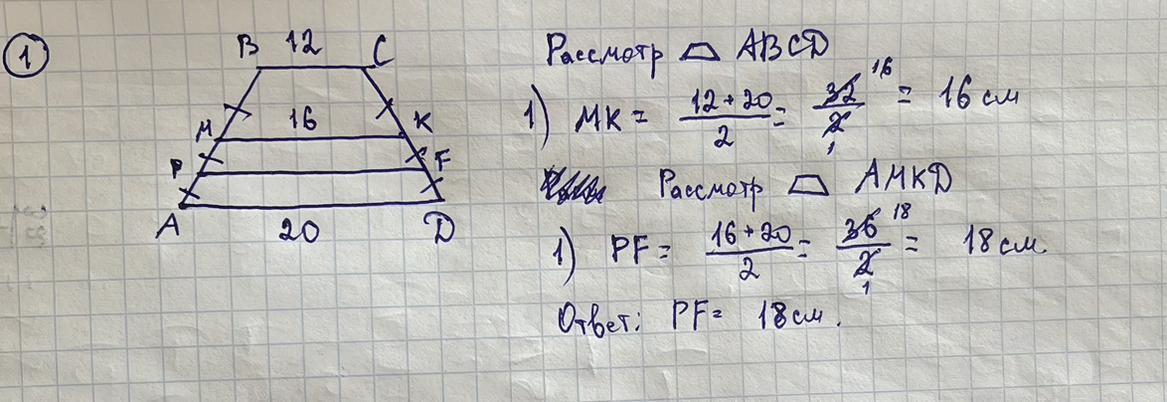 1
B 12 C
M 16 K
P F
A 20 D
Рассмотр ⏢ ABCD
1) MK = (12 + 20)/2 = 32/2 16 1 = 16 см
Рассмотр ⏢ AMKD
1) PF = (16 + 20)/2 = 36/2 18 1 = 18 см.
Ответ: PF = 18 см.